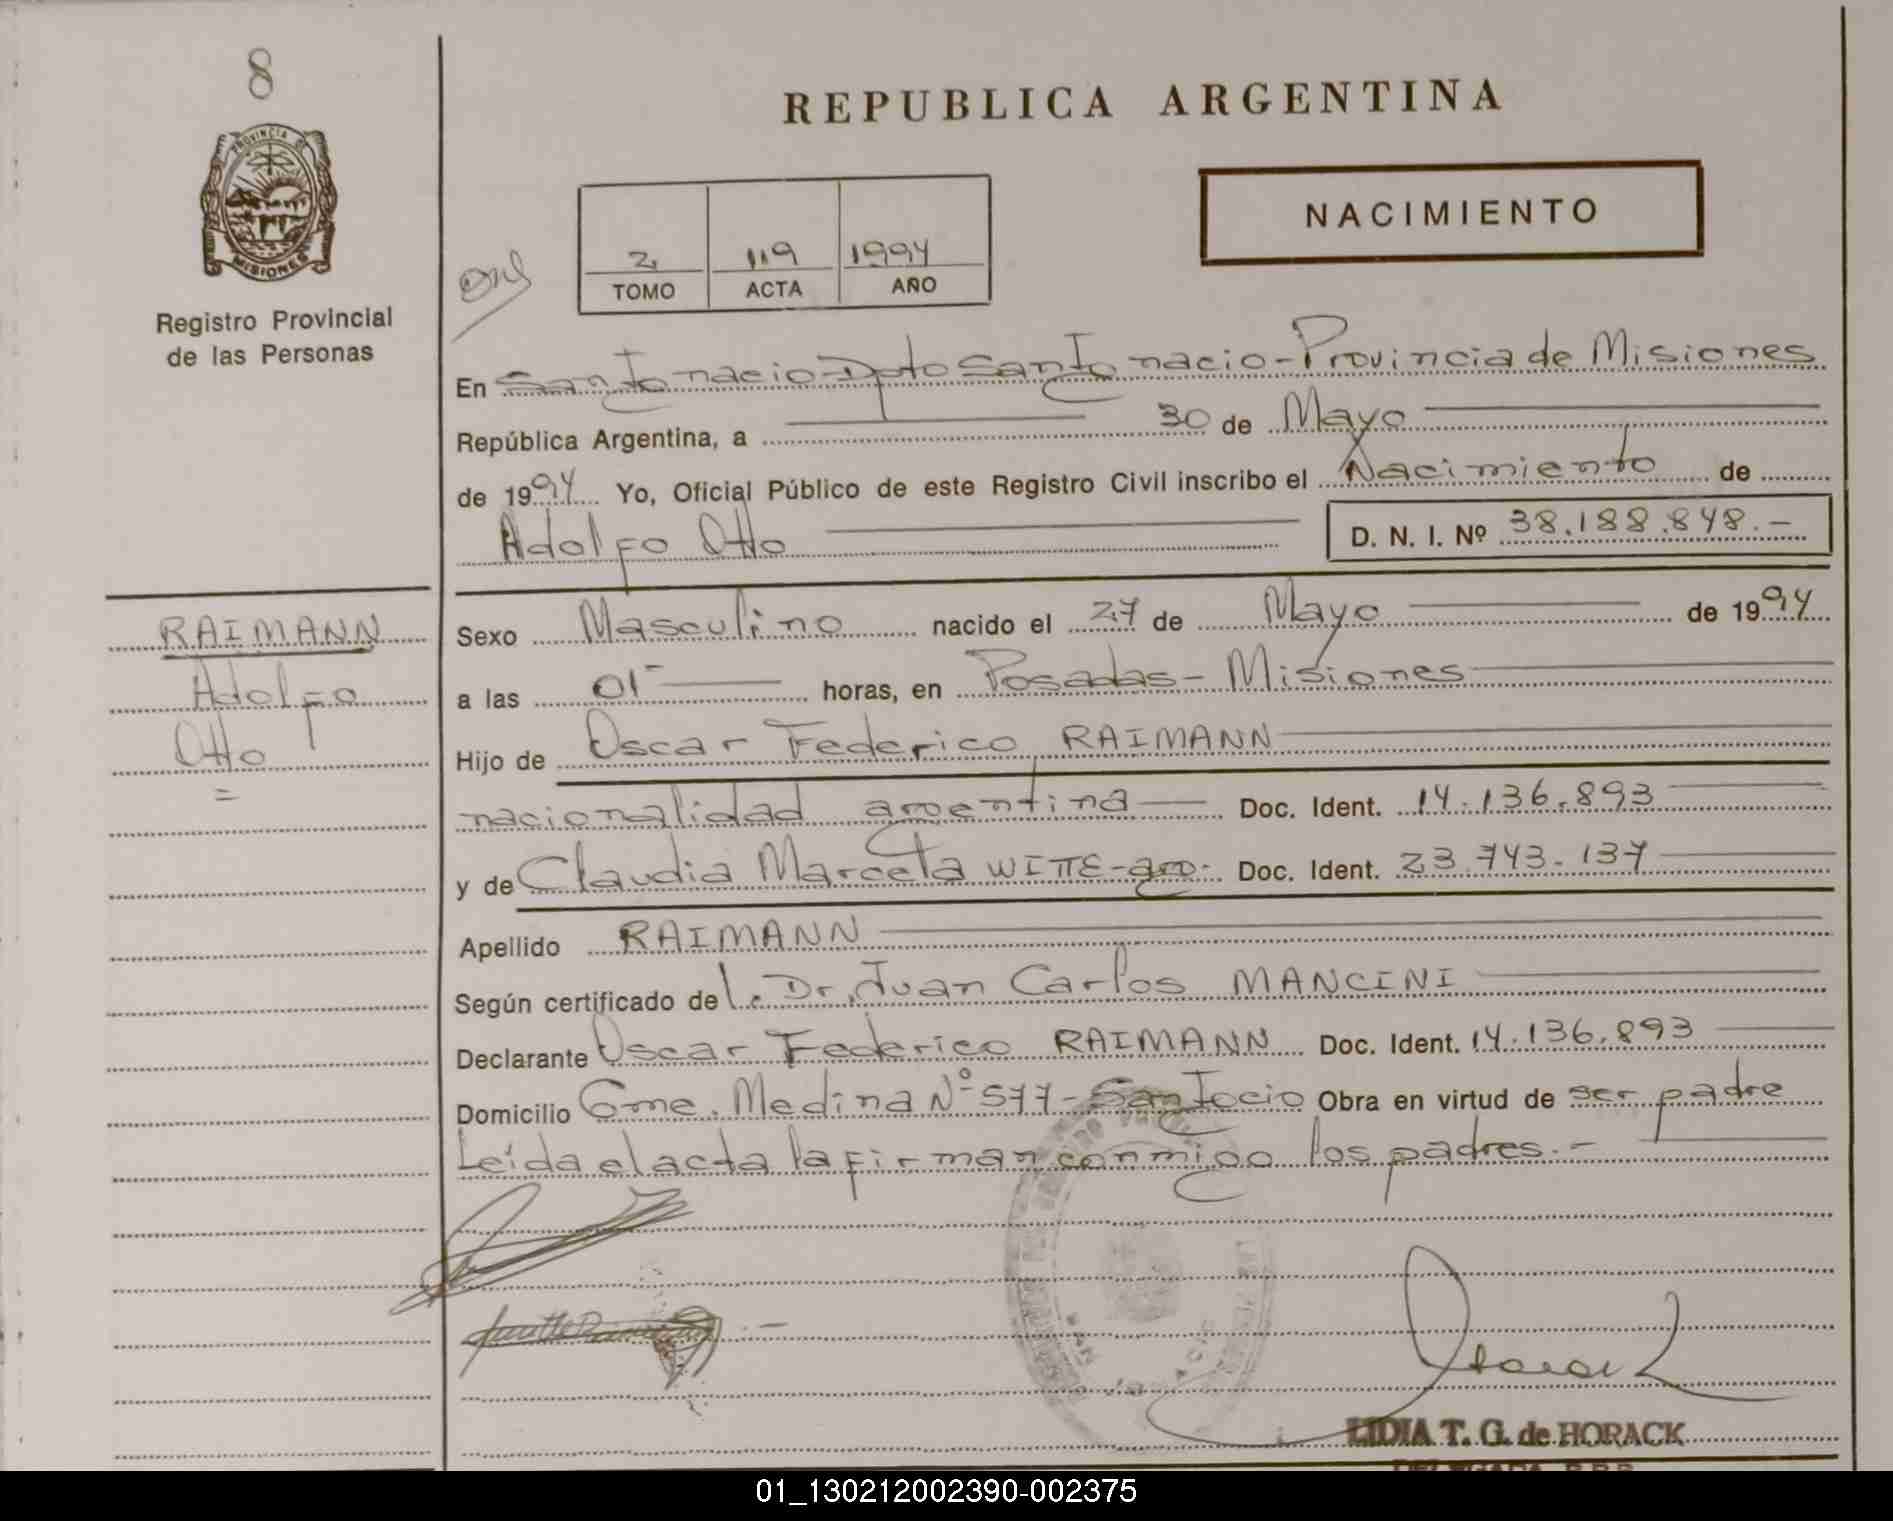 8
PROVINCIA DE
MISIONES
Registro Provincial
de las Personas
REPUBLICA ARGENTINA
NACIMIENTO
2 119 1994
TOMO ACTA AÑO
En San Ignacio - Dpto San Ignacio - Provincia de Misiones
República Argentina, a 30 de Mayo
de 1994 Yo, Oficial Público de este Registro Civil inscribo el Nacimiento de
Adolfo Otto D. N. I. Nº 38.188.848.-
RAIMANN
Adolfo
Otto
=
Sexo Masculino nacido el 27 de Mayo de 1994
a las 01- horas, en Posadas - Misiones
Hijo de Oscar Federico RAIMANN
nacionalidad argentina Doc. Ident. 14.136.893
y de Claudia Marcela WITTE - arg.- Doc. Ident. 23.743.137
Apellido RAIMANN
Según certificado del. Dr. Juan Carlos MANCINI
Declarante Oscar Federico RAIMANN Doc. Ident. 14.136.893
Domicilio Gme. Medina Nº 577 - San Igcio Obra en virtud de ser padre
Leída el acta la firman conmigo los padres.-
LIDIA T. G. de HORACK
01_130212002390-002375